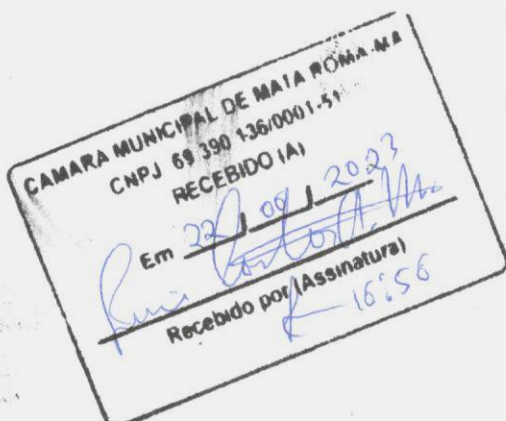 CAMARA MUNICIPAL DE MATA ROMA-MA
CNPJ 69 390 136/0001-51
RECEBIDO (A)
Em 22/09/2023
Recebido por (Assinatura)
16:56